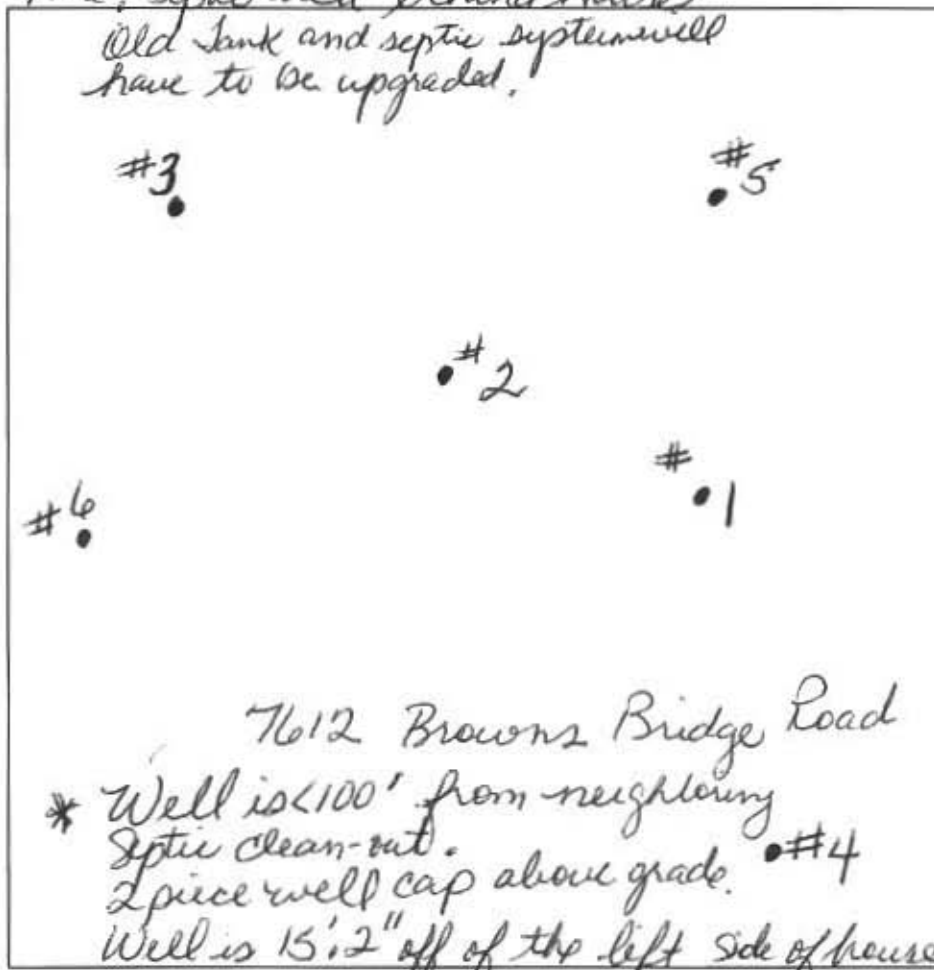 Old Tank and septic system will
have to be upgraded.
#3
#5
#2
#1
#6
7612 Browns Bridge Road
* Well is <100' from neighboring
Septic clean-out.
#4
2 piece well cap above grade.
Well is 15'2" off of the left side of house